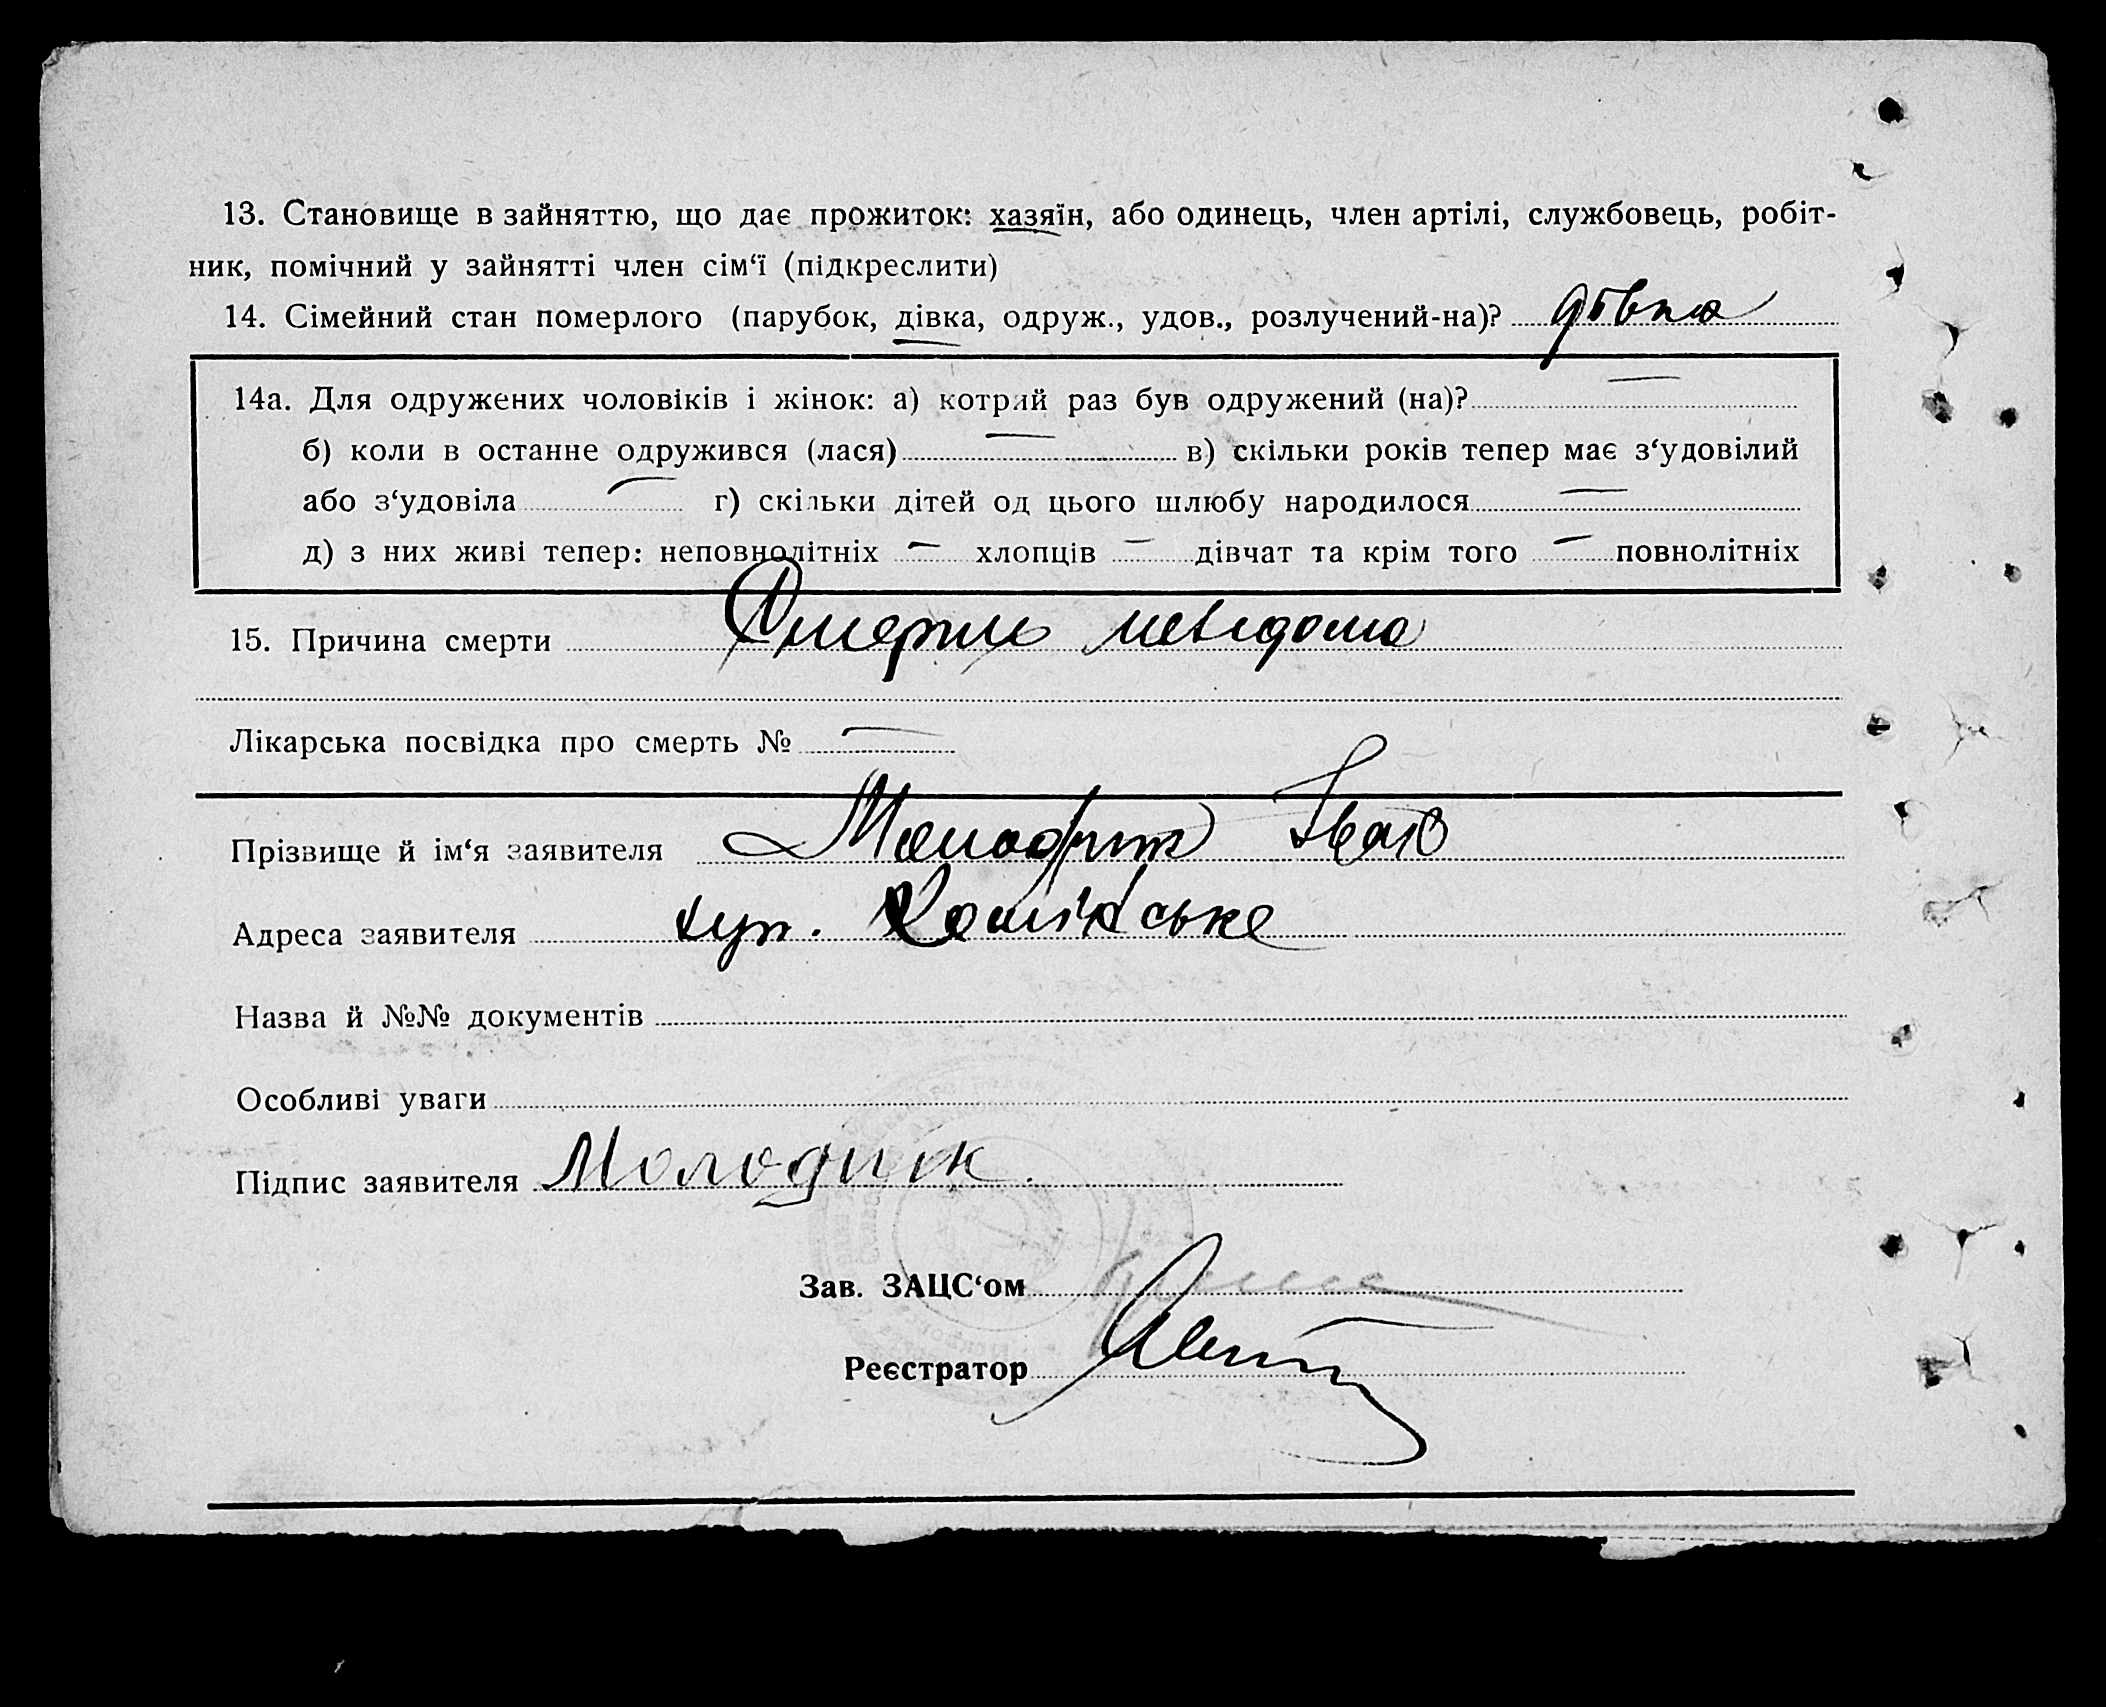 13. Становище в зайняттю, що дає прожиток: хазяїн, або одинець, член артілі, службовець, робіт-
ник, помічний у зайнятті член сім‘ї (підкреслити)
14. Сімейний стан померлого (парубок, дівка, одруж., удов., розлучений-на)? дівка
14а. Для одружених чоловіків і жінок: а) котрий раз був одружений (на)? —
б) коли в останне одружився (лася) — в) скільки років тепер має з‘удовілий
або з‘удовіла — г) скільки дітей од цього шлюбу народилося —
д) з них живі тепер: неповнолітніх — хлопців — дівчат та крім того — повнолітніх
15. Причина смерти Смерть невідома
Лікарська посвідка про смерть № —
Прізвище й ім‘я заявителя Іван
Адреса заявителя хут.
Назва й №№ документів
Особливі уваги
Підпис заявителя Молодик
Зав. ЗАЦС‘ом
Реєстратор